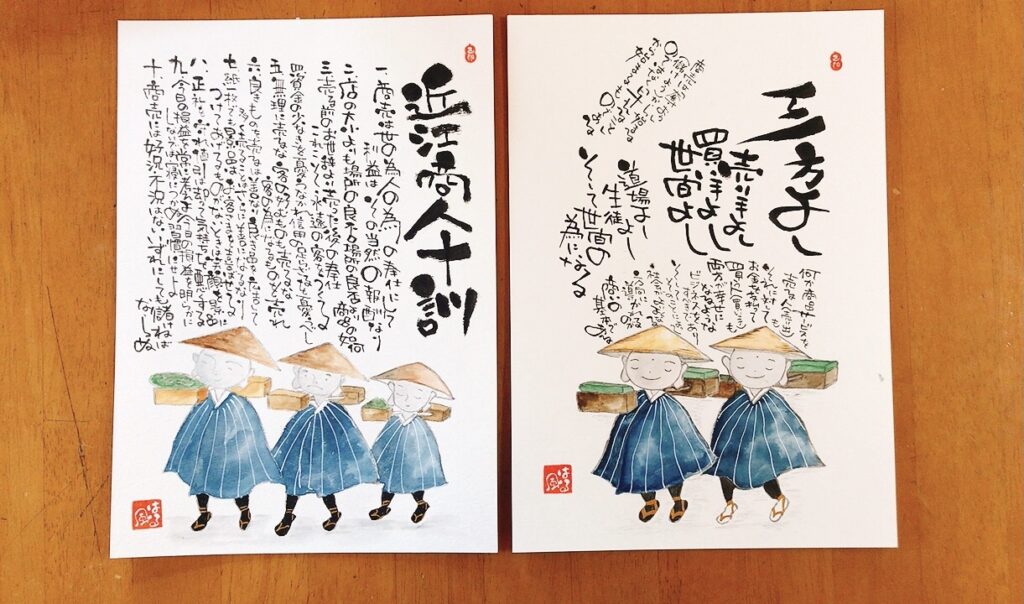 近江商人十訓
一、商売は世の為人の為の奉仕にして
利益はその当然の報酬なり
二、店の大小よりも場所の良否場所の良否よりも商品の如何
三、売る前のお世辞より売った後の奉仕
これこそ永遠の客をつくる
四、資金の少なきを憂うなかれ信用の足らざるを憂うべし
五、無理に売るな客の好むものも売るな
客の為になるものを売れ
六、良きものを売るは善なり良き品を広告して
多く売ることはさらに善なり
七、紙一枚でも景品はお客さまを喜ばせる
つけてあげるもののないときは笑顔を景品
八、正札を守れ値引きは却って気持ちを悪くする
九、今日の損益を常に考えよ今日の損益を明らかに
しないでは寝につかぬ習慣にせよ
十、商売には好況不況はないいずれにしても儲けねば
ならぬ
はる風
三方よし
売り手よし
買い手よし
世間よし
道場よし
生徒よし
そして世間の
為になる
何か商品サービスなど
売る人(売り手)も
それに対して
お金を払って
買う人(買い手)も
はる風